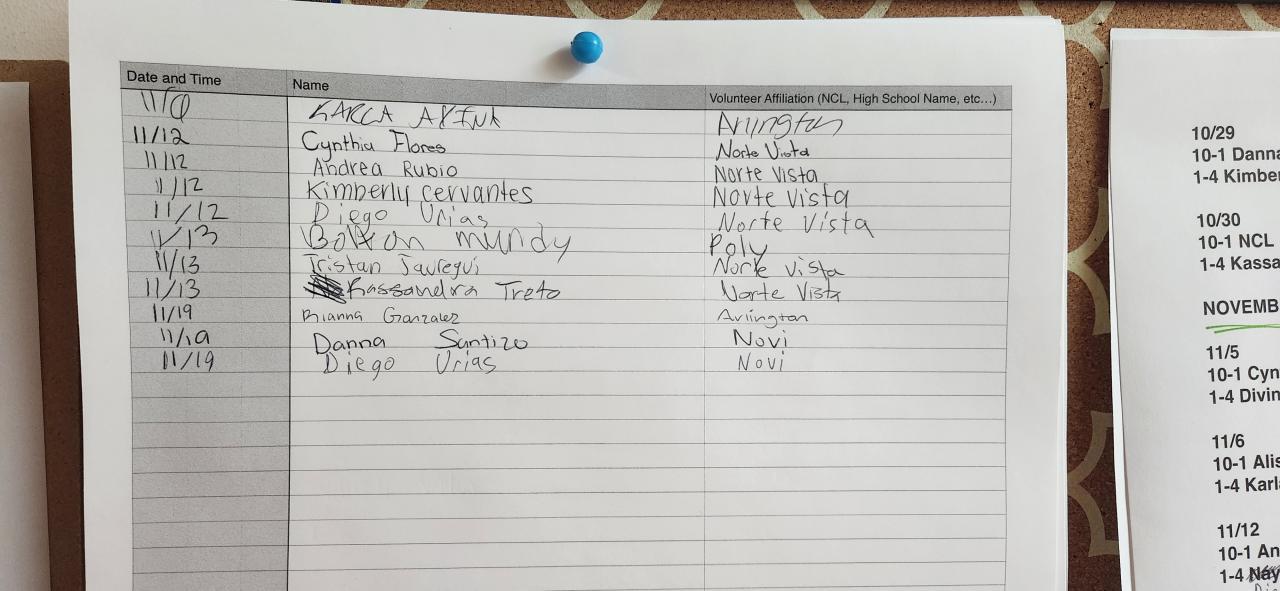 Date and Time Name Volunteer Affiliation (NCL, High School Name, etc...)
Arlington
11/12 Cynthia Flores Norte Vista
11/12 Andrea Rubio Norte Vista
11/12 Kimberly cervantes Norte Vista
11/12 Diego Urias Norte Vista
11/13 mundy Poly
11/13 Tristan Jauregui Norte Vista
11/13 Kassandra Treto Norte Vista
11/19 Gonzalez Arlington
Danna Santizo Novi
11/19 Diego Urias Novi
10/29
10-1 Danna
1-4 Kimber
10/30
10-1 NCL
1-4 Kassa
NOVEMB
11/5
10-1 Cyn
1-4 Divin
11/6
10-1 Alis
1-4 Karl
11/12
10-1 An
1-4